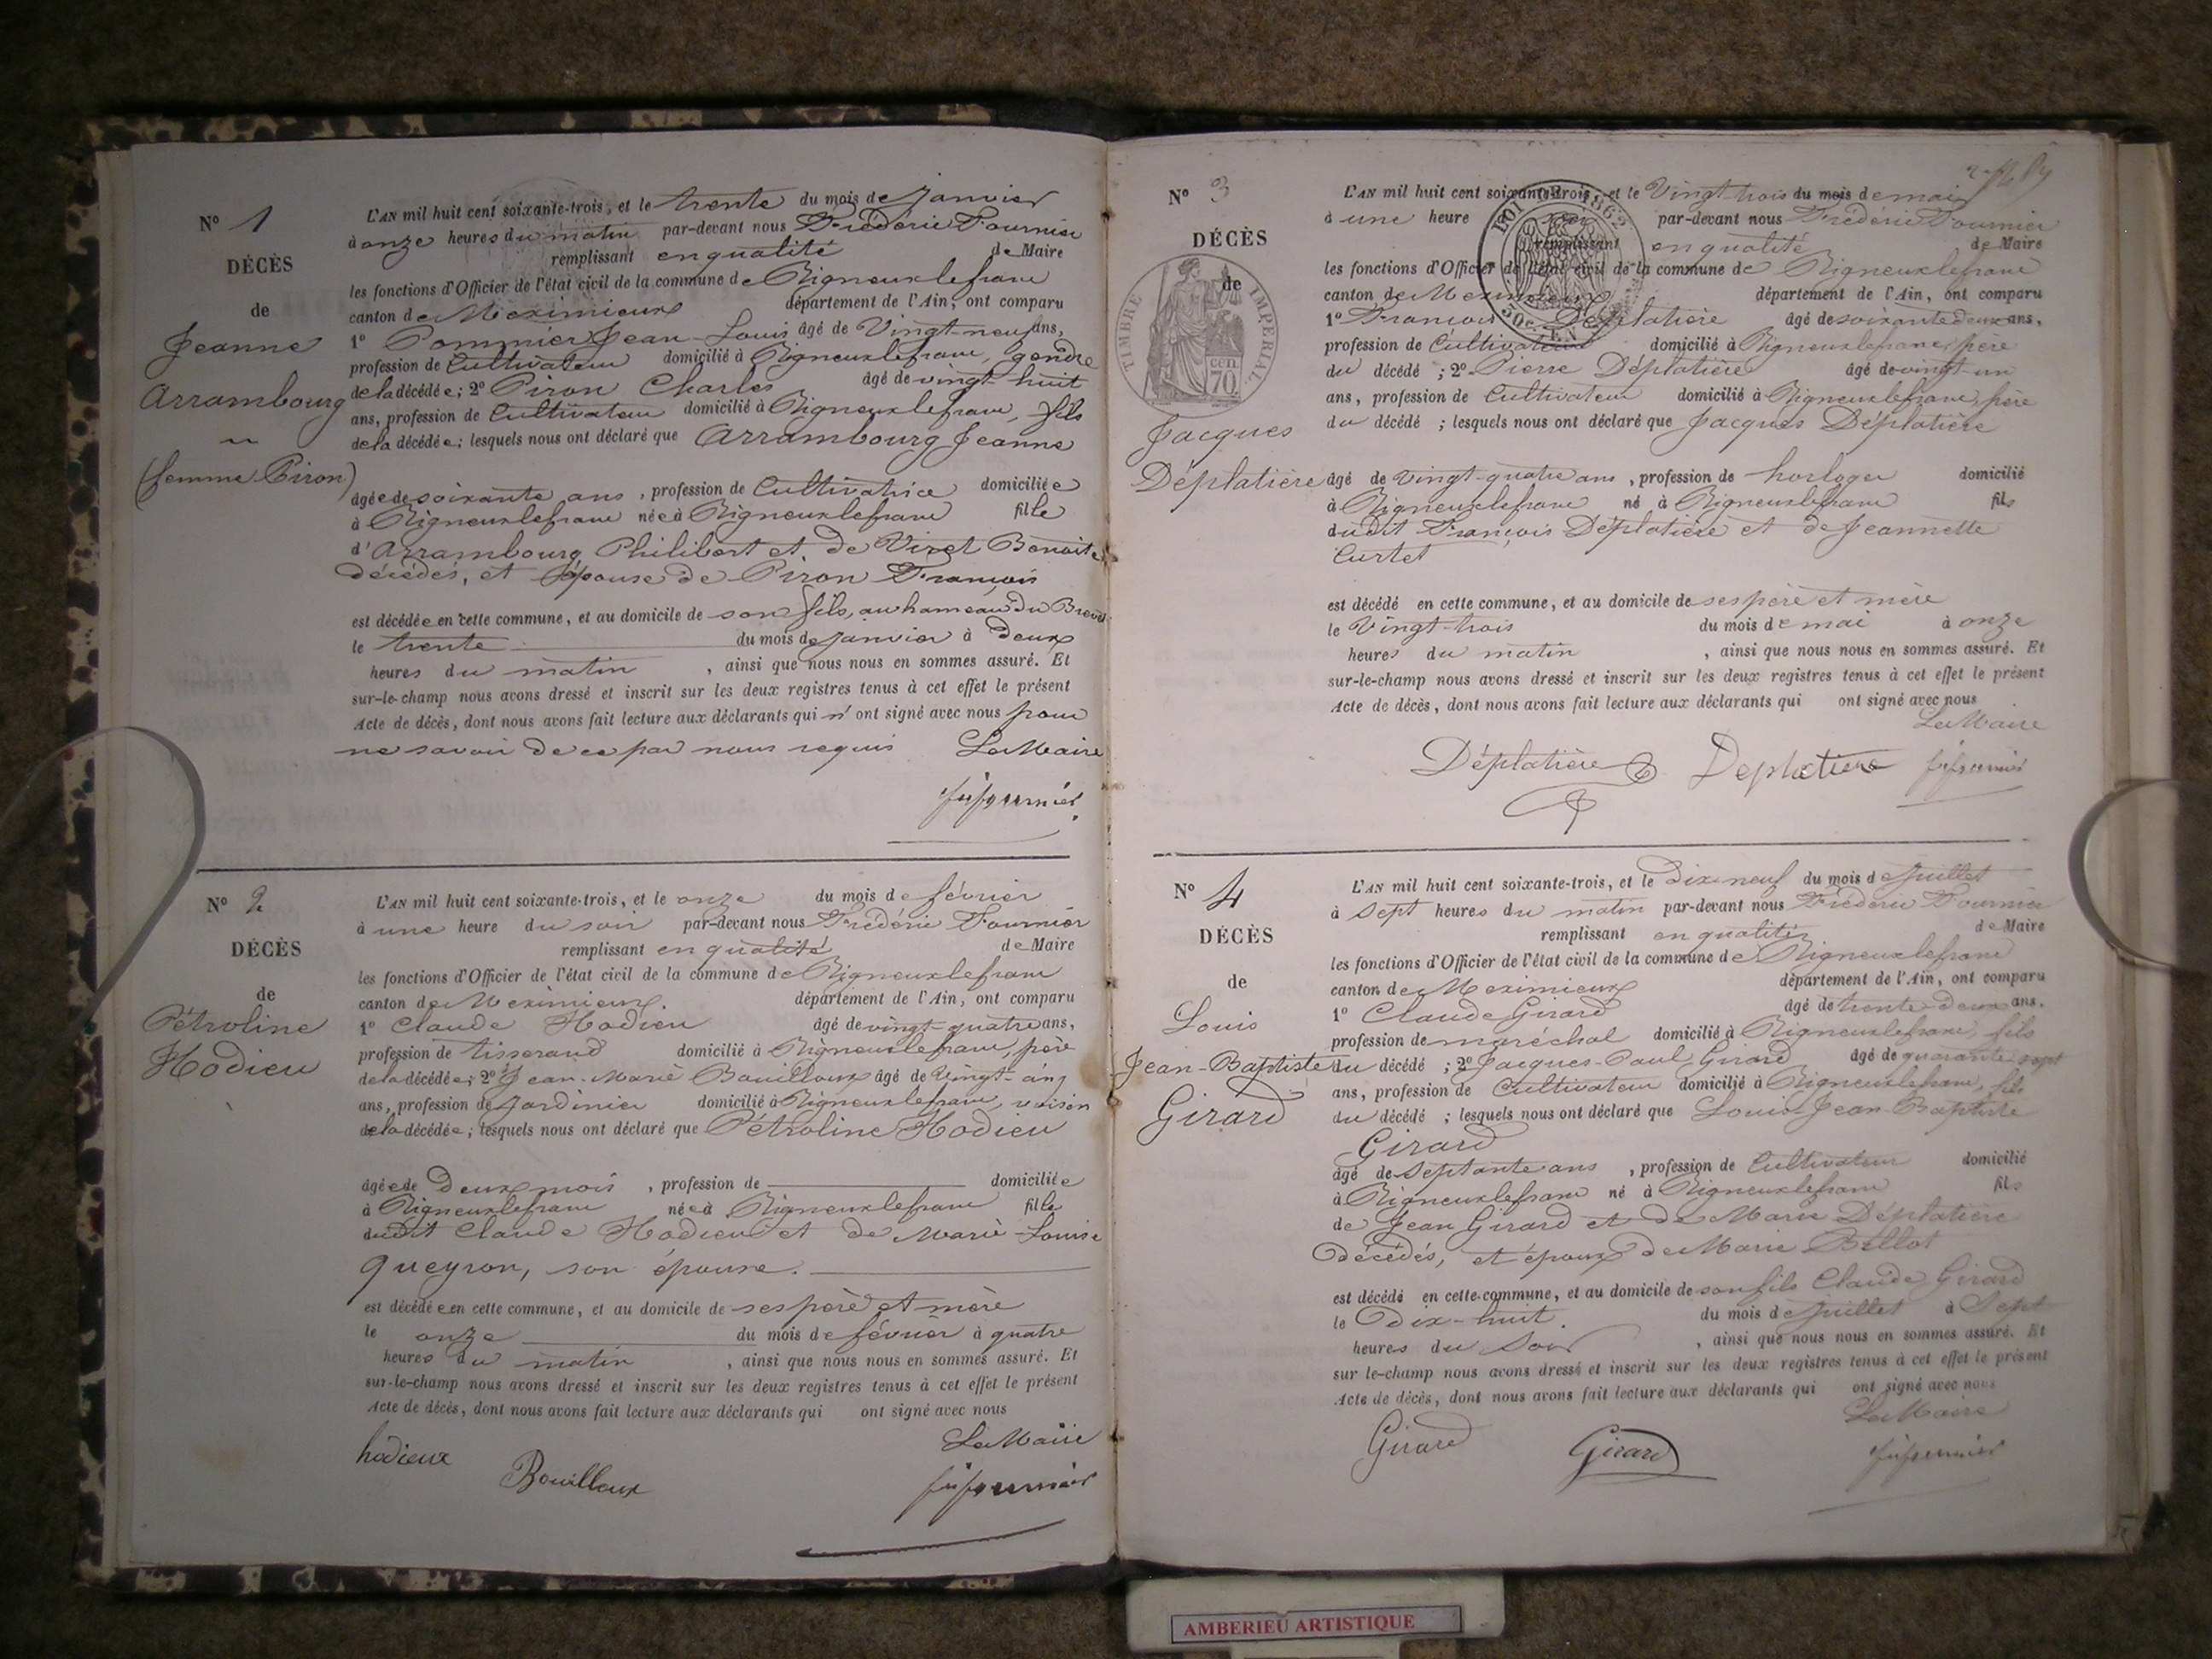 N° 1
DÉCÈS
de
Jeanne
Arrambourg
(femme Piron)
L'AN mil huit cent soixante-trois, et le trente du mois de janvier
à onze heures du matin par-devant nous Frédéric Fournier
remplissant en qualité de Maire
les fonctions d'Officier de l'état civil de la commune de Rigneuxlefranc
canton de Meximieux département de l'Ain, ont comparu
1° Pommier Jean-Louis âgé de Vingt-neuf ans,
profession de Cultivateur domicilié à Rigneuxlefranc, gendre
de la décédée; 2° Piron Charles âgé de vingt-huit
ans, profession de Cultivateur domicilié à Rigneuxlefranc, fils
de la décédée; lesquels nous ont déclaré que Arrambourg Jeanne
âgée de soixante ans, profession de Cultivatrice domiciliée
à Rigneuxlefranc née à Rigneuxlefranc fille
d'Arrambourg Philibert et de Viret Benoite
décédés, et épouse de Piron François
est décédée en cette commune, et au domicile de son fils, au hameau du
le trente du mois de janvier à Deux
heures du matin, ainsi que nous nous en sommes assuré. Et
sur-le-champ nous avons dressé et inscrit sur les deux registres tenus à cet effet le présent
Acte de décès, dont nous avons fait lecture aux déclarants qui n'ont signé avec nous pour
ne savoir de ce par nous requis Le Maire
f fournier
N° 2
DÉCÈS
de
Pétroline
Hodieu
L'AN mil huit cent soixante-trois, et le onze du mois de février
à une heure du soir par-devant nous Frédéric Fournier
remplissant en qualité de Maire
les fonctions d'Officier de l'état civil de la commune de Rigneuxlefranc
canton de Meximieux. département de l'Ain, ont comparu
1° Claude Hodieu âgé de vingt-quatre ans,
profession de tisserand domicilié à Rigneuxlefranc, père
de la décédée; 2° Jean-Marie Bouilloux âgé de Vingt-cinq
ans, profession de Jardinier domicilié à Rigneuxlefranc, voisin
de la décédée; lesquels nous ont déclaré que Pétroline Hodieu
âgée de Deux mois, profession de domiciliée
à Rigneuxlefranc née à Rigneuxlefranc fille
dudit Claude Hodieu et de Marie-Louise
Queyron, son épouse.
est décédée en cette commune, et au domicile de ses père et mère
le onze du mois de février à quatre
heures du matin, ainsi que nous nous en sommes assuré. Et
sur-le-champ nous avons dressé et inscrit sur les deux registres tenus à cet effet le présent
Acte de décès, dont nous avons fait lecture aux déclarants qui ont signé avec nous
Le Maire
hodieux Bouilloux f fournier
N° 3
DÉCÈS
de
TIMBRE IMPERIAL
CEN 70
Jacques
Déplatière
L'AN mil huit cent soixante-trois, et le Vingt-trois du mois de mai
à une heure du soir par-devant nous Frédéric Fournier
remplissant en qualité de Maire
les fonctions d'Officier de l'état civil de la commune de Rigneuxlefranc
canton de Meximieux département de l'Ain, ont comparu
1° François Déplatière âgé de soixante deux ans,
profession de Cultivateur domicilié à Rigneuxlefranc, père
du décédé; 2° Pierre Déplatière âgé de vingt-un
ans, profession de Cultivateur domicilié à Rigneuxlefranc, frère
du décédé; lesquels nous ont déclaré que Jacques Déplatière
âgé de vingt-quatre ans, profession de horloger domicilié
à Rigneuxlefranc né à Rigneuxlefranc fils
dudit François Déplatière et de Jeannette
Curtet
est décédé en cette commune, et au domicile de ses père et mère
le Vingt-trois du mois de mai à onze
heures du matin, ainsi que nous nous en sommes assuré. Et
sur-le-champ nous avons dressé et inscrit sur les deux registres tenus à cet effet le présent
Acte de décès, dont nous avons fait lecture aux déclarants qui ont signé avec nous
Le Maire
Déplatière Deplatiere f fournier
N° 4
DÉCÈS
de
Louis
Jean-Baptiste
Girard
L'AN mil huit cent soixante-trois, et le Dix-neuf du mois de Juillet
à sept heures du matin par-devant nous Frédéric Fournier
remplissant en qualité de Maire
les fonctions d'Officier de l'état civil de la commune de Rigneuxlefranc
canton de Meximieux département de l'Ain, ont comparu
1° Claude Girard âgé de trente-deux ans.
profession de maréchal domicilié à Rigneuxlefranc, fils
du décédé; 2° Jacques-Paul Girard âgé de quarante-sept
ans, profession de Cultivateur domicilié à Rigneuxlefranc, fils
du décédé; lesquels nous ont déclaré que Louis Jean-Baptiste
Girard
âgé de septante ans, profession de Cultivateur domicilié
à Rigneuxlefranc né à Rigneuxlefranc fils
de Jean Girard et de Marie Déplatière
décédés, et époux de Marie Billot
est décédé en cette commune, et au domicile de son fils Claude Girard
le Dix-huit. du mois de Juillet à Sept
heures du Soir, ainsi que nous nous en sommes assuré. Et
sur le-champ nous avons dressé et inscrit sur les deux registres tenus à cet effet le présent
Acte de décès, dont nous avons fait lecture aux déclarants qui ont signé avec nous
Le Maire
Girard Girard f fournier
AMBERIEU ARTISTIQUE